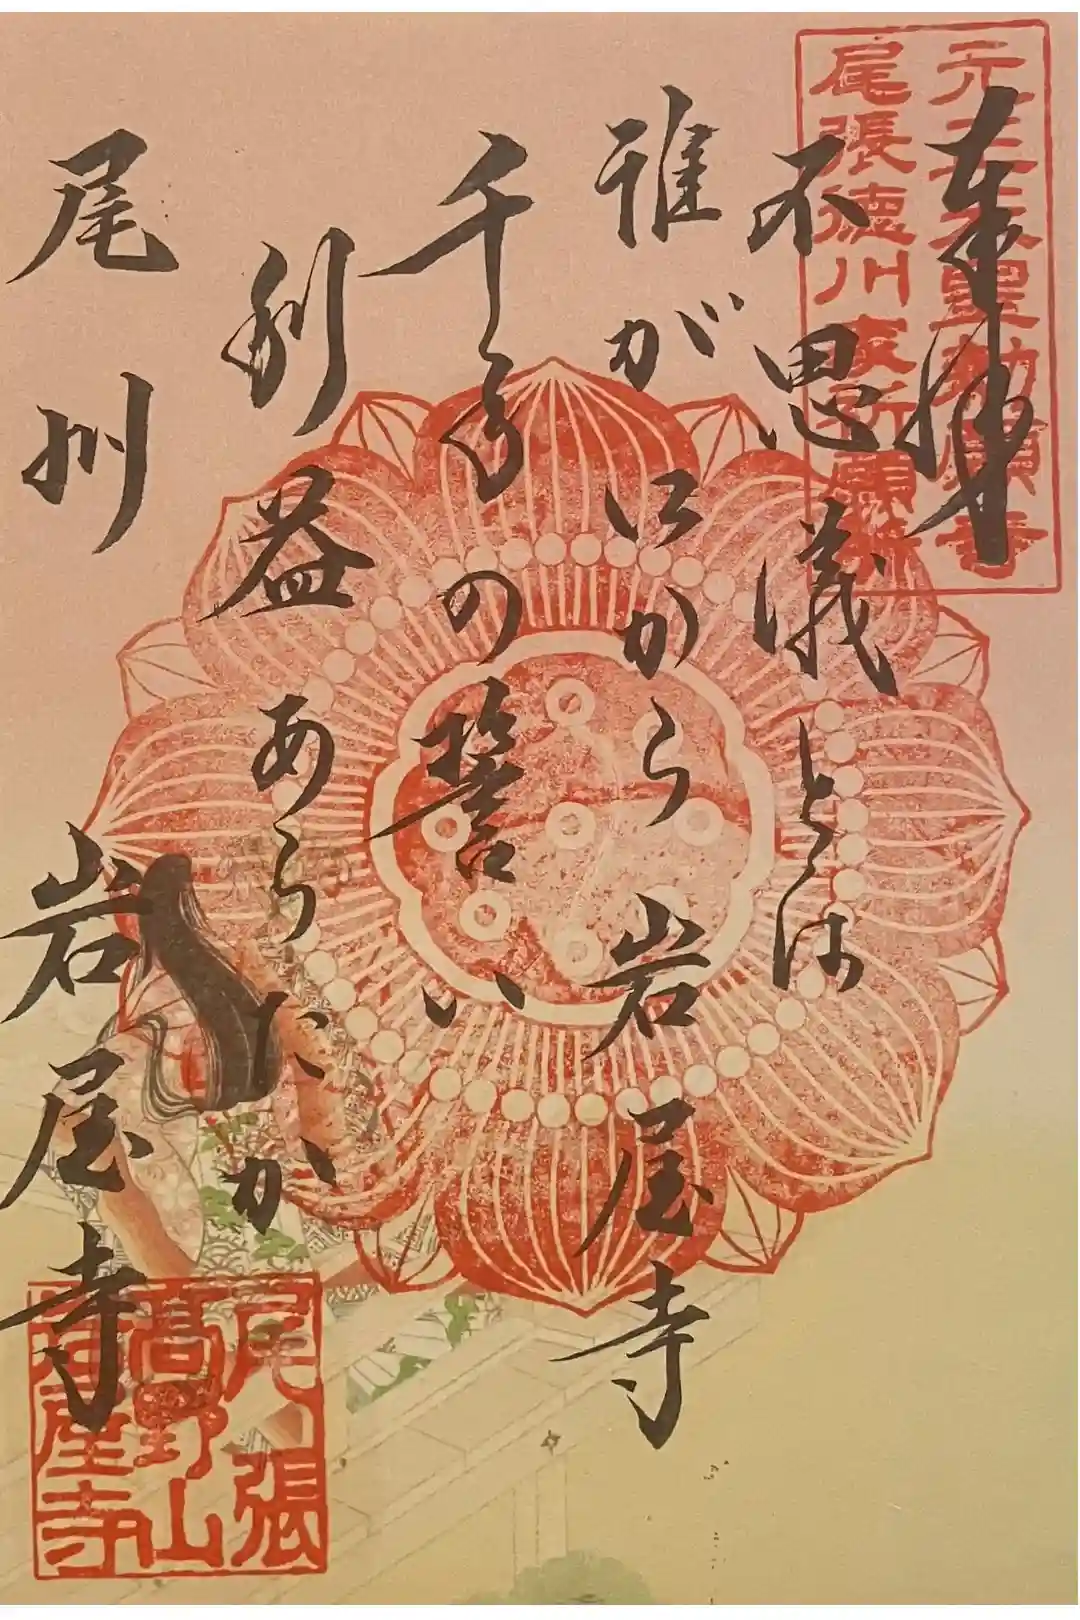 元正天皇勅願寺
尾張徳川家祈願所
奉拝
不思議とは
誰が から岩屋寺
千手の誓い
利益あらたか
尾州 岩屋寺
尾張
髙野山
岩屋寺